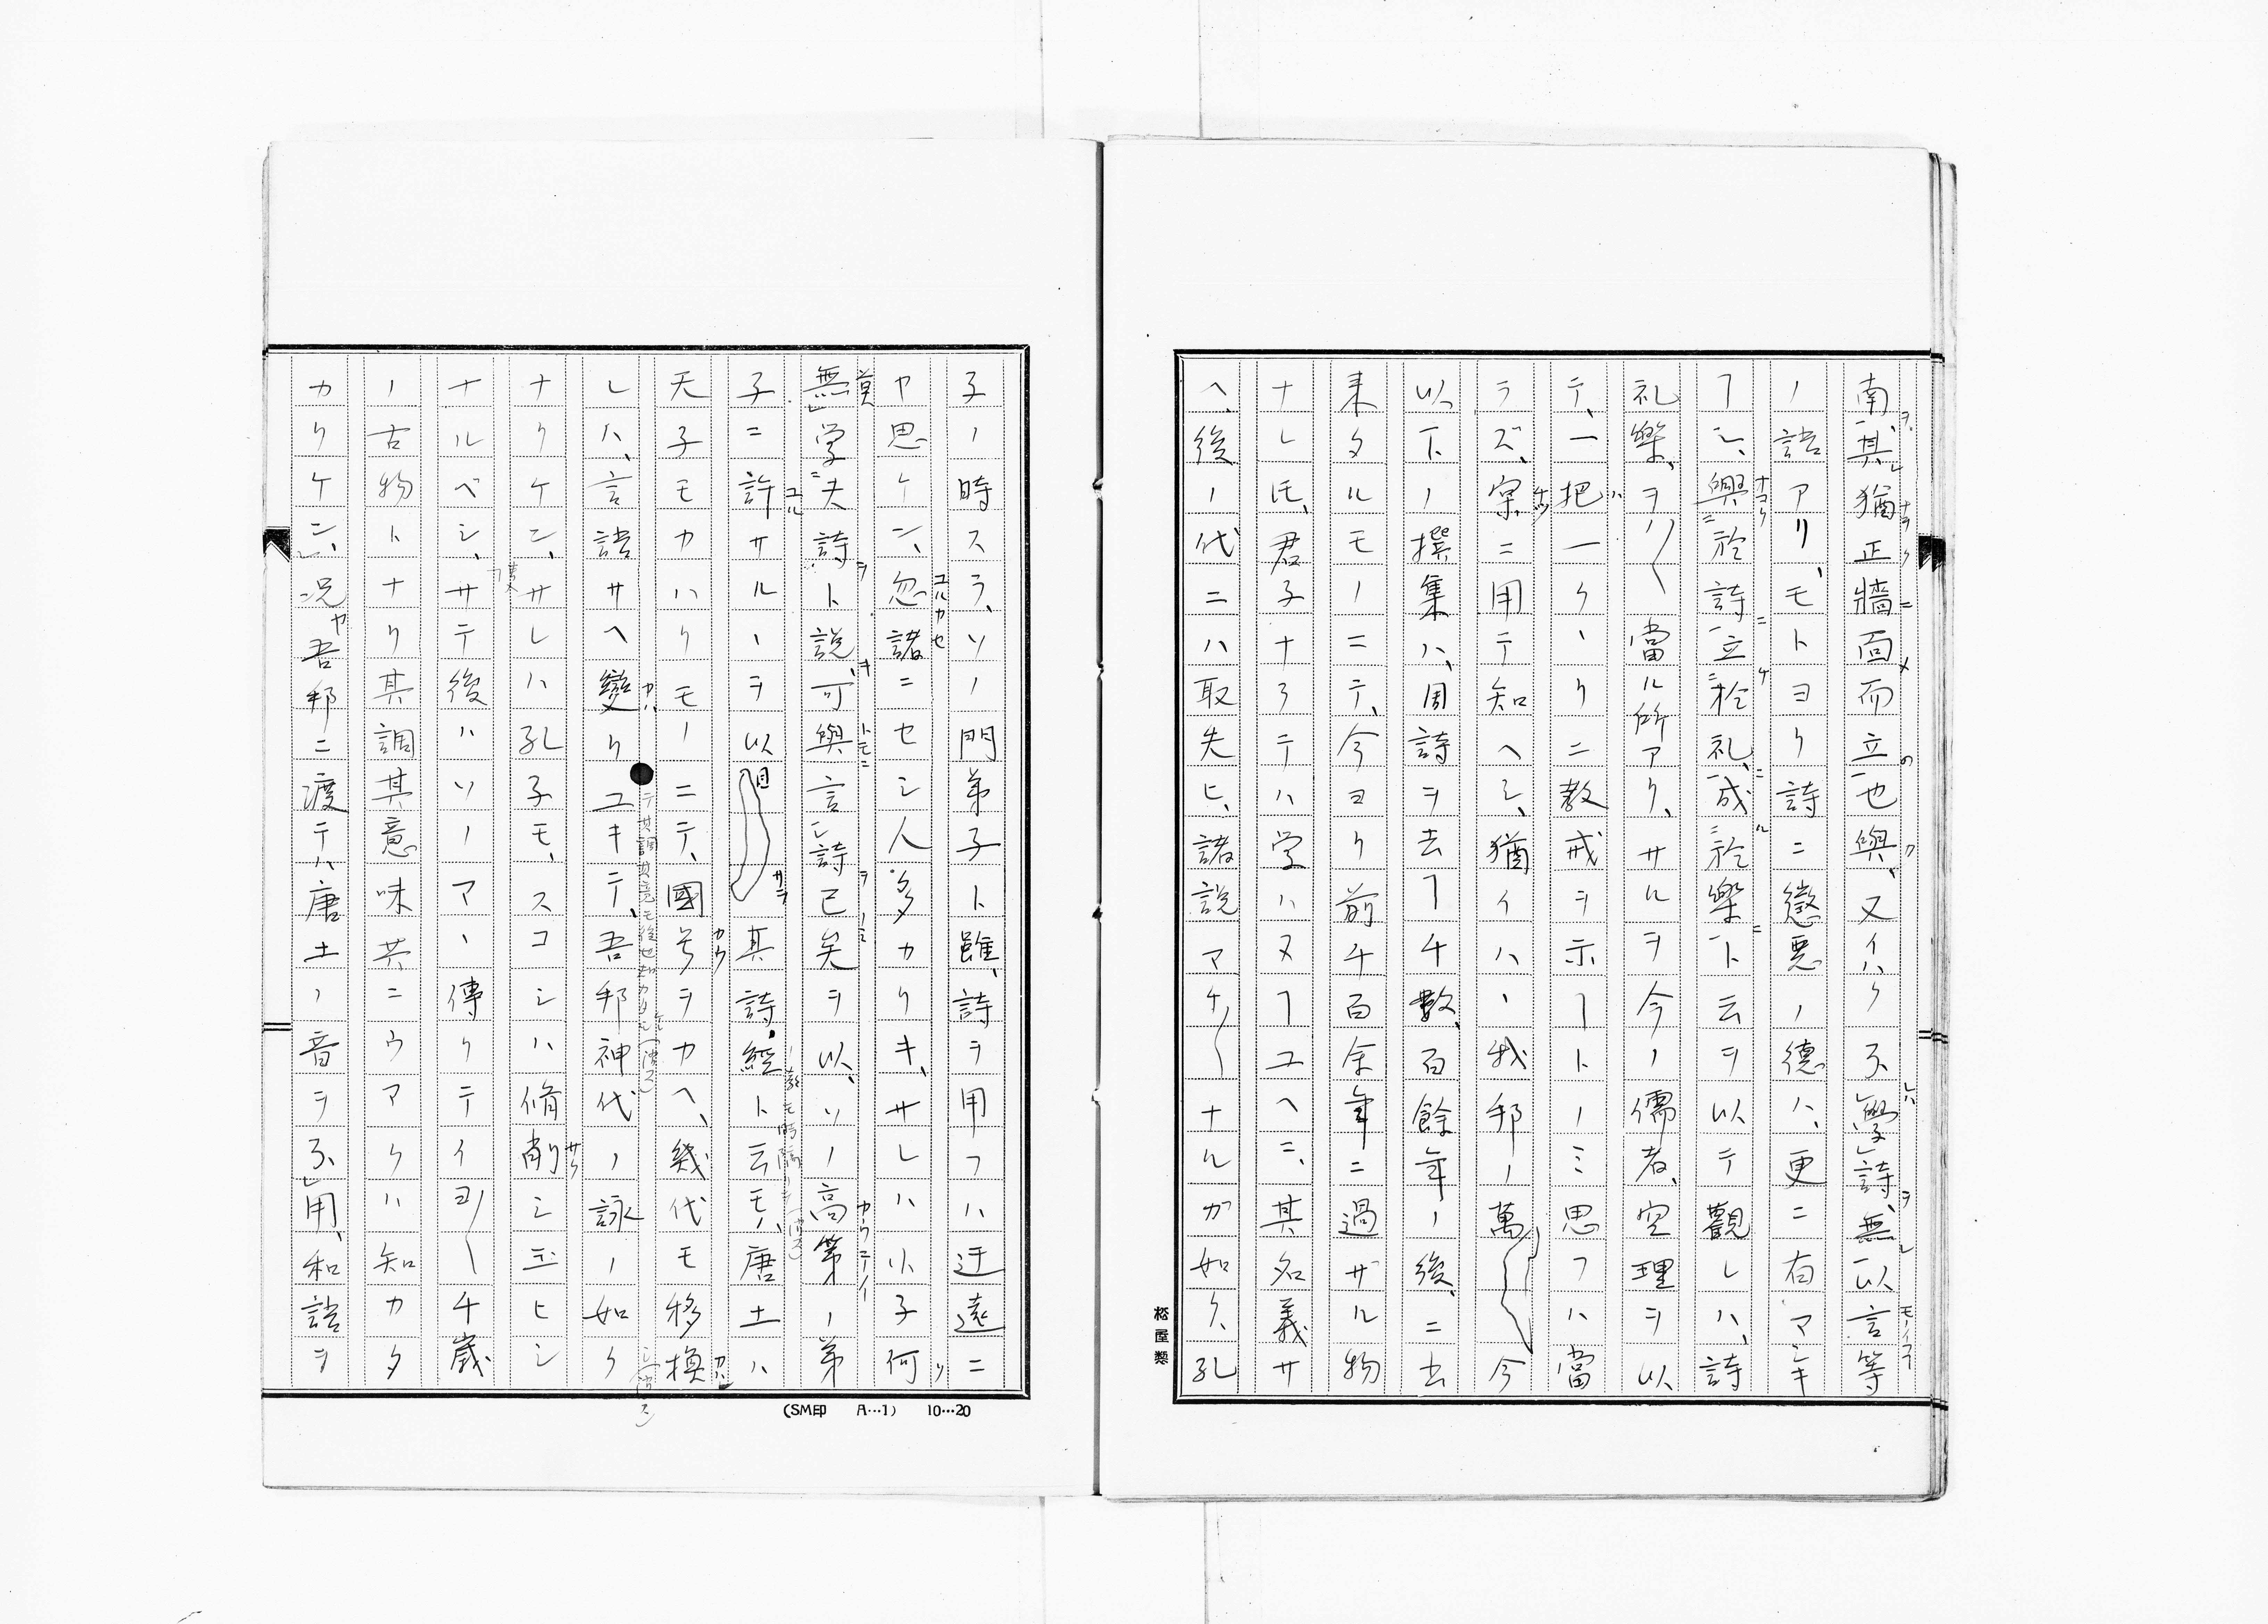 南、其猶正牆面而立也與、又イハク不學詩、無以言等
ノ語アリ、モトヨリ詩ニ懲悪ノ徳ハ、更ニ有マシキ
ヿニ、興於詩立於礼、成於樂ト云ヲ以テ觀レハ、詩
礼樂、ヲ〳〵當ル所アリ、サルヲ今ノ儒者、空理ヲ以
テ、一把一クヽリニ教戒ヲ示ヿトノミ思フハ當
ラズ、実ニ用テ知ヘシ、猶イハヽ我邦ノ萬 今
以下ノ撰集ハ、周詩ヲ去ヿ千數百餘年ノ後ニ出
来タルモノニテ、今ヨリ前千百余年ニ過ザル物
ナレ𪜈、君子ナラテハ学ハヌヿユヘニ、其名義サ
ヘ、後ノ代ニハ取失ヒ、諸説マチ〳〵ナルガ如ク、孔
子ノ時スラ、ソノ門弟子ト雖、詩ヲ用フハ迂遠ニ
ヤ思ケン、忽諸ニセシ人多カリキ、サレハ小子何
莫
無学夫詩ト説、可與言詩已矣ヲ以、ソノ高第ノ弟
子ニ許サルヽヲ以 其詩経ト云モ、唐土ハ
天子モカハリモノニテ、國号ヲカヘ、幾代モ移換
レハ、言語サヘ變リユキテ、吾邦神代ノ詠ノ如ク
ナリケン、サレハ孔子モ、スコシハ脩削シ玉ヒシ
ナルベシ、サテ後ハソノアヽ傳リテイヨ〳〵千歳
ノ古物トナリ其調其意味共ニウマクハ知カタ
カリケン、況ヤ吾邦ニ渡テハ、唐土ノ音ヲ不用、和語ヲ
松屋製
(SM印 A…1) 10…20